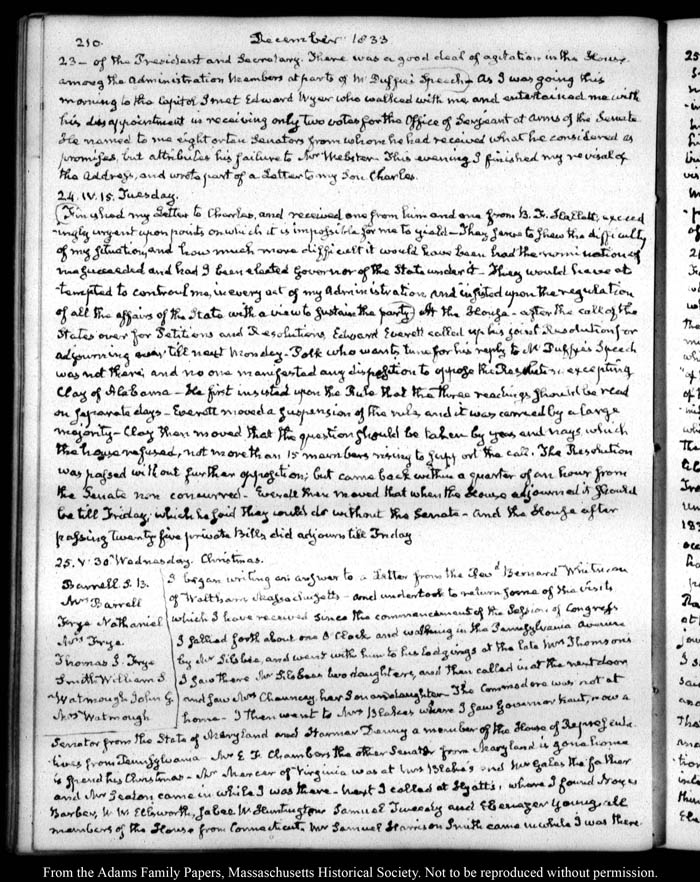 210. December 1833
23 – of the President and Secretary. There was a good deal of agitation in the House
among the Administration Members at parts of Mr Duffie's Speech – As I was going this
morning to the Capitol I met Edward Wyer who walked with me, and entertained me with
his disappointment in receiving only two votes for the Office of Sergeant at Arms of the Senate
He named to me eight or ten Senators from whom he had received what he considered as
promises, but attributes his failure to Mr Webster – This evening I finished my revisal of
the Address, and wrote part of a Letter to my Son Charles.
24. IV. 15. Tuesday.
Finished my Letter to Charles, and received one from him and one from B. F. Hallett, exceed
-ingly urgent upon points on which it is impossible for me to yield – They serve to shew the difficulty
of my situation, and how much more difficult it would have been had the nomination of
me succeeded and had I been elected Governor of the State under it – They would have at
tempted to controul me, in every act of my Administration and insisted upon the regulation
of all the affairs of the State with a view to sustain the party – At the House – after the call of the
States over for Petitions and Resolutions, Edward Everett called up his joint Resolution for
adjourning over till next Monday – Polk who wants time for his reply to Mc Duffie's Speech
was not there; and no one manifested any disposition to oppose the Resolution excepting
Clay of Alabama – He first insisted upon the Rule that the three readings should be read
on separate days – Everett moved a suspension of the rule, and it was carried by a large
majority – Clay then moved that the question should be taken by yeas and nays, which
the house refused, not more than 15 members rising to support the call. The Resolution
was passed without further opposition; but came back within a quarter of an hour from
the Senate non concurred – Everett then moved that when the House adjourned it should
be till Friday, which he said they could do without the Senate – and the House after
passing twenty five private Bills did adjourn till Friday
25. V. 30 Wednesday. Christmas.
Barrell S. B.
Mrs Barrell
Frye Nathaniel
Mrs Frye.
Thomas J. Frye
Smith William S.
Watmough John G.
Mrs Watmough
I began writing an answer to a Letter from the Revd Bernard Whitman
of Waltham Massachusetts – and undertook to return some of the visits
which I have received since the commencement of the Session of Congress
I sallied forth about one O'Clock and walking in the Pennsylvania Avenue
by Mr Silsbee, and went with him to his lodgings at the late Mrs Thomson's
I saw there Mr Silsbee's two daughters, and then called in at the next door
and saw Mrs Chauncey, her Son and daughter – The Commodore was not at
home – I then went to Mrs Blake's where I saw Governor Kent, now a
Senator from the State of Maryland and Harmar Denny a member of the House of Representa-
tives from Pennsylvania – Mr E. F. Chambers the other Senator from Maryland is gone home
to spend his Christmas – Mr Mercer of Virginia was at Mrs Blake's and Mr Gales the father
and Mr Seaton came in while I was there – Next I called at Hyatt's, where I found Noyes
Barber, W. W. Ellsworth, Jabez W. Huntington Samuel Tweedy and Ebenezer Young, all
members of the House from Connecticut. Mr Samuel Harrison Smith came in while I was there
From the Adams Family Papers, Massachusetts Historical Society. Not to be reproduced without permission.